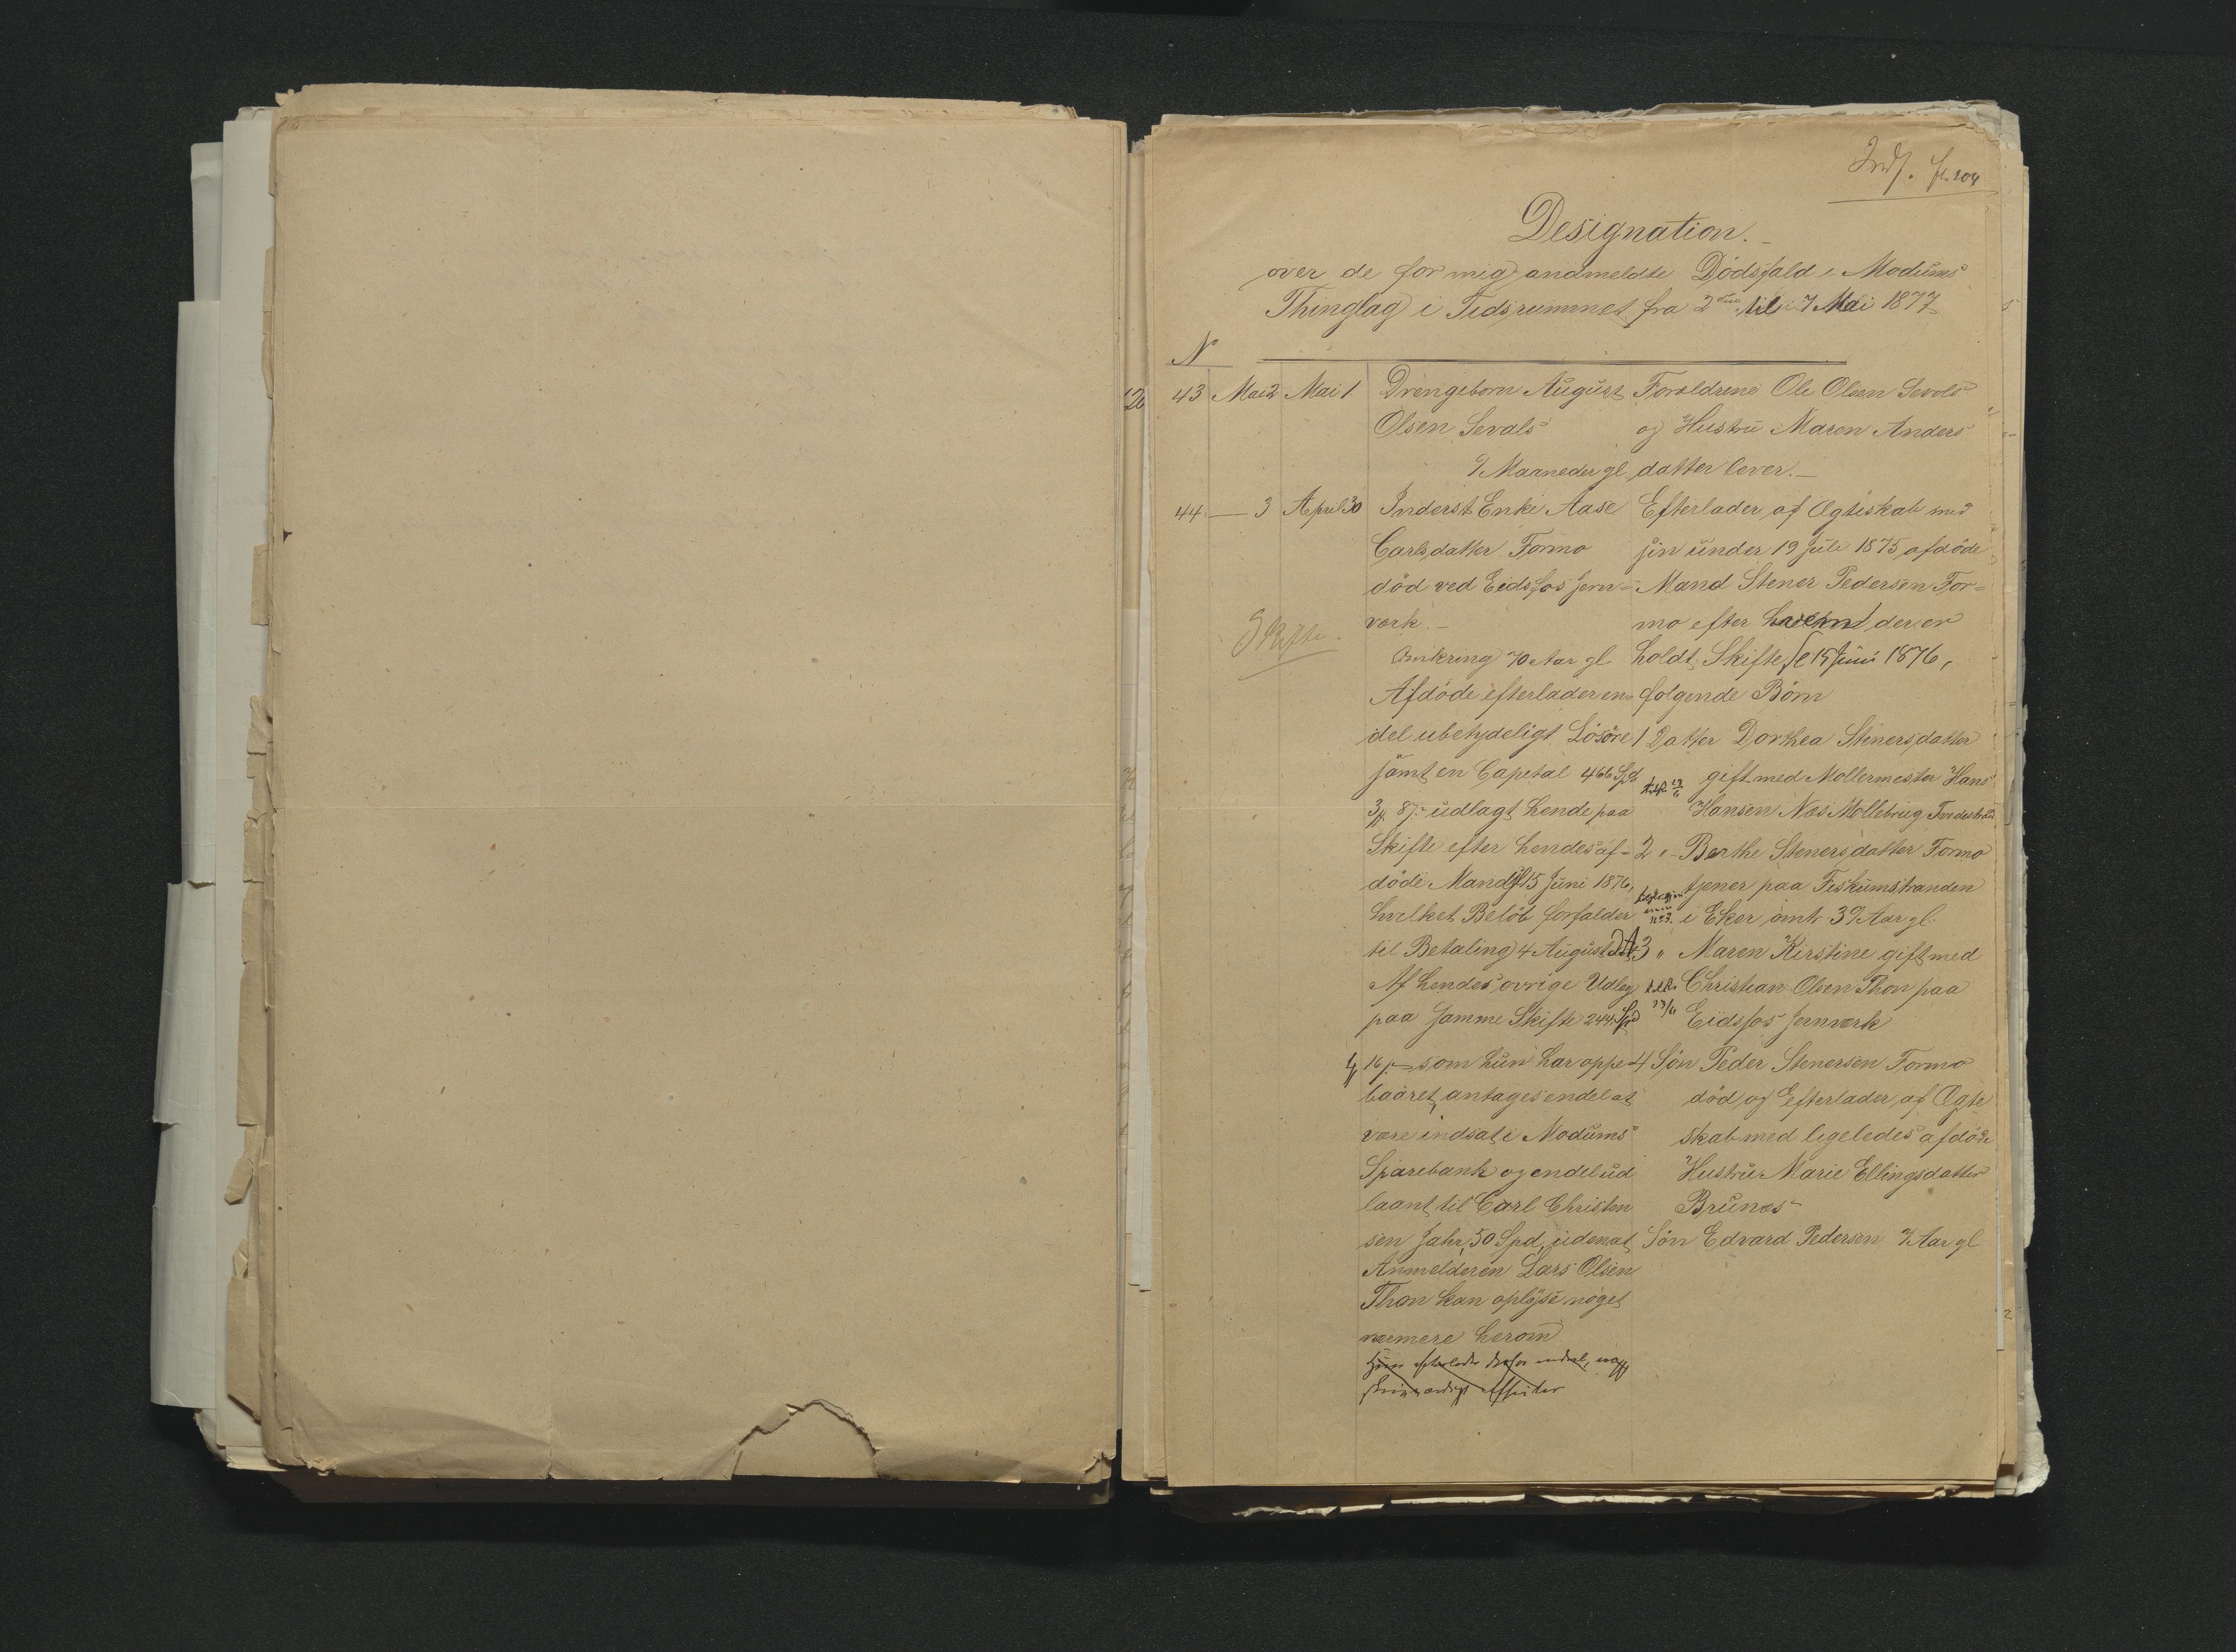 Indf. fl. 204
Designation.
over de for mig anmeldte Dödsfald i Modums
Thinglag i Tidsrummet fra 2den til 7 Mai 1877
N
43 Mai 2 Mai 1 Drengebarn August Foreldrene Ole Olsen Sevals
Olsen Sevals og Hustru Maren Anders
9 Maaneder gl datter lever.
44 — 3 April 30 Inderst Enke Aase Efterlader af Ægteskab med
Carlsdatter Formo sin under 19 Juli 1875 afdöde
död ved Eidsfos Jern= Mand Stener Pedersen For=
værk.— mo efter hvem der er
Skifte.
Omkring 70 Aar gl holdt Skifte 15 Juni 1876,
Afdöde efterlader en folgende Börn
del ubetydeligt Lösöre 1 Datter Dorthea Stenersdatter
samt en Capital 466 Spd gift med Mollermester Hans
3 87 udlagt hende paa Hansen Næs Mollebrug
Skifte efter hendes af- 2 " Berthe Stenersdatter Formo
döde Mand 15 Juni 1876, tjener paa Fiskumstranden
hvilket Belöb forfalder i Eker omtr 39 Aar gl.
til Betaling 4 August 3 " Maren Kirstine gift med
Af hendes ovrige Udlæg Christian Olsen Thon paa
paa samme Skifte 244 Spd Eidsfos Jernværk
16 som hun har oppe- 4 Sön Peder Stenersen Formo
baaret, antages endel at död og Efterlader af Ægte
være indsat i Modums skab med ligeledes afdöde
Sparebank og endel ud Hustru Marie Ellingsdatter
laant til Carl Christen Brunæs
sen Jahr, 50 Spd, uden at Sön Edvard Pedersen 7 Aar gl
Anmelderen Lars Olsen
Thon kan oplyse noget
nærmere herom
Hun efterlader